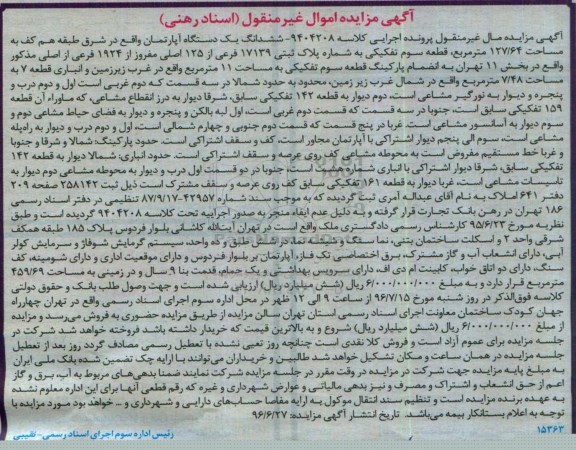 آگهی مزایده اموال غیرمنقول (اسناد رهنی)
آگهی مزایده مال غیرمنقول پرونده اجرایی کلاسه ۹۴۰۴۲۰۸- ششدانگ یک دستگاه آپارتمان واقع در شرق طبقه هم کف به
مساحت ۱۲۷/۶۴ مترمربع، قطعه سوم تفکیکی به شماره پلاک ثبتی ۱۷۱۳۹ فرعی از ۱۲۵ اصلی مفروز از ۱۹۲۴ فرعی از اصلی مذکور
واقع در بخش ۱۱ تهران به انضمام پارکینگ قطعه سوم تفکیکی به مساحت ۱۱ مترمربع واقع در غرب زیرزمین و انباری قطعه ۷ به
مساحت ۷/۴۸ مترمربع واقع در شمال غرب زیر زمین، محدود به حدود شمالا در سه قسمت که دوم غربی است اول و دوم درب و
پنجره و دیوار به نورگیر مشاعی است، دوم دیوار به قطعه ۱۴۲ تفکیکی سابق، شرقا دیوار به درز انقطاع مشاعی، که ماوراء آن قطعه
۱۵۹ تفکیکی سابق است. جنوبا در سه قسمت که قسمت دوم غربی است، اول لبه بالکن و پنجره و دیوار به فضای حیاط مشاعی دوم و
سوم دیوار به آسانسور مشاعی است. غربا در پنج قسمت که قسمت دوم جنوبی و چهارم شمالی است، اول و دوم درب و دیوار به راه‌پله
مشاعی است، سوم الی پنجم دیوار اشتراکی با آپارتمان مجاور است، کف و سقف اشتراکی است. حدود پارکینگ: شمالا و شرقا و جنوبا
و غربا خط مستقیم مفروض است به محوطه مشاعی کف روی عرصه و سقف اشتراکی است. حدود انباری: شمالا دیوار به قطعه ۱۴۲
تفکیکی سابق، شرقا دیوار اشتراکی با انباری است جنوبا در دو قسمت اول درب و دیوار به محوطه مشاعی دوم دیوار به
تاسیسات مشاعی است، غربا دیوار به قطعه ۱۶۱ تفکیکی سابق کف روی عرصه و سقف مشترک است ذیل ثبت ۲۵۸۱۴۲ صفحه ۲۰۹
دفتر ۶۴۱ املاک به نام آقای عبداله آمری ثبت گردیده که به موجب سند شماره ۴۲۹۵۷-۸۷/۹/۱۷ تنظیمی در دفتر اسناد رسمی
۱۸۶ تهران در رهن بانک تجارت قرار گرفته و به دلیل عدم ایفاء منجر به صدور اجراییه تحت کلاسه ۹۴۰۴۲۰۸ گردیده است و طبق
نظریه مورخ ۹۵/۶/۲۳ کارشناس رسمی دادگستری ملک واقع است در تهران آیت‌الله کاشانی بلوار فردوس پلاک ۱۸۵ طبقه همکف
شرقی واحد ۲ و اسکلت ساختمان بتنی، نما سنگ و شیشه نما، در طبق و ده واحد، سیستم گرمایش شوفاژ و سرمایش کولر
آبی، دارای انشعاب آب و گاز مشترک، برق اختصاصی تک فاز، آپارتمان بر بلوار فردوس و دارای موقعیت اداری و دارای شومینه، کف
سنگ، دارای دو اتاق خواب، کابینت ام دی اف، دارای سرویس بهداشتی و یک حمام، قدمت بنا ۹ سال و در زمینی به مساحت ۴۵۹/۶۹
مترمربع قرار دارد و به مبلغ ۶/۰۰۰/۰۰۰/۰۰۰ ریال (شش میلیارد ریال) ارزیابی شده است و جهت وصول طلب بانک و حقوق دولتی
کلاسه فوق‌الذکر در روز شنبه مورخ ۹۶/۷/۱۵ از ساعت ۹ الی ۱۲ ظهر در محل اداره سوم اجرای اسناد رسمی واقع در تهران چهارراه
جهان کودک ساختمان معاونت اجرای اسناد رسمی استان تهران سالن مزایده از طریق مزایده حضوری به فروش می‌رسد و مزایده
از مبلغ ۶/۰۰۰/۰۰۰/۰۰۰ ریال (شش میلیارد ریال) شروع و به بالاترین قیمت که خریدار داشته باشد فروخته خواهد شد شرکت در
جلسه مزایده برای عموم آزاد است و فروش کلا نقدی است چنانچه روز تعیین شده با تعطیل رسمی مصادف گردد روز بعد از تعطیل
جلسه مزایده در همان ساعت و مکان تشکیل خواهد شد طالبین و خریداران می‌توانند با ارایه چک تضمین شده بانک ملی ایران
به مبلغ پایه مزایده جهت شرکت در مزایده در وقت مقرر در جلسه مزایده شرکت نمایند ضمنا بدهی‌های مربوط به آب، برق و گاز
اعم از حق انشعاب و اشتراک و مصرف و نیز بدهی مالیاتی و عوارض شهرداری و غیره که رقم قطعی آنها برای این اداره معلوم نشده
به عهده برنده مزایده است و تنظیم سند انتقال موکول به ارایه مفاصا حساب‌های دارایی و شهرداری و... خواهد بود مورد مزایده با
توجه به اعلام بستانکار بیمه می‌باشد. تاریخ انتشار آگهی مزایده: ۹۶/۶/۲۷
۱۵۳۶۳
رئیس اداره سوم اجرای اسناد رسمی- نقیبی